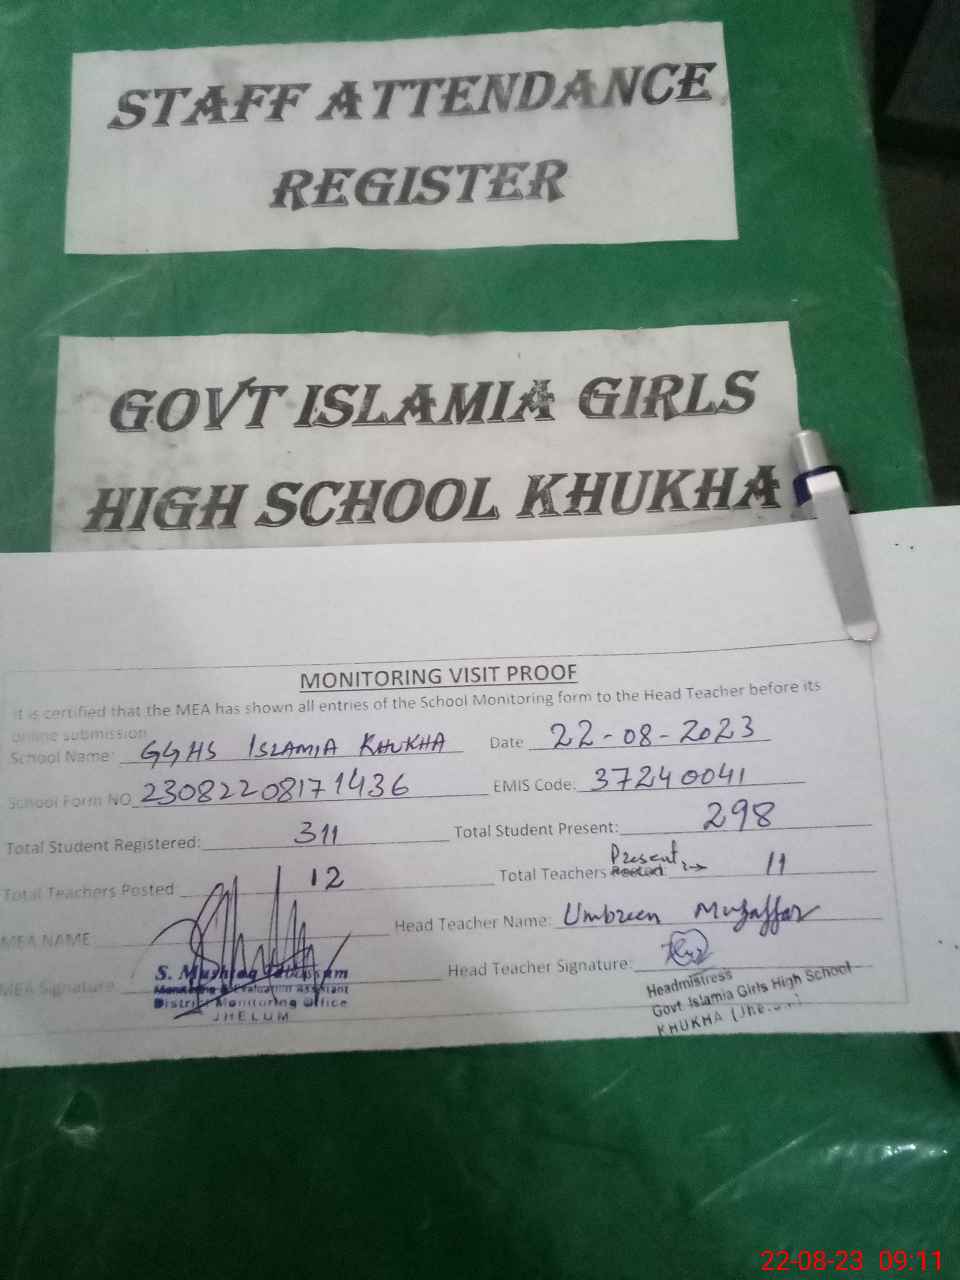 STAFF ATTENDANCE
REGISTER
GOVT ISLAMIA GIRLS
HIGH SCHOOL KHUKHA
MONITORING VISIT PROOF
It is certified that the MEA has shown all entries of the School Monitoring form to the Head Teacher before its
online submission
School Name: GGHS ISLAMIA KHUKHA Date 22-08-2023
School Form NO 23082208171436 EMIS Code: 37240041
Total Student Registered: 311 Total Student Present: 298
Total Teachers Posted: 12 Total Teachers Posted: Present 11
MEA NAME Head Teacher Name: Umbreen Muzaffar
MEA Signature Head Teacher Signature:
S. Mushtaq Tabassum
Monitoring & Evaluation Assistant
District Monitoring Office
JHELUM
Headmistress
Govt Islamia Girls High School
KHUKHA
22-08-23 09:11